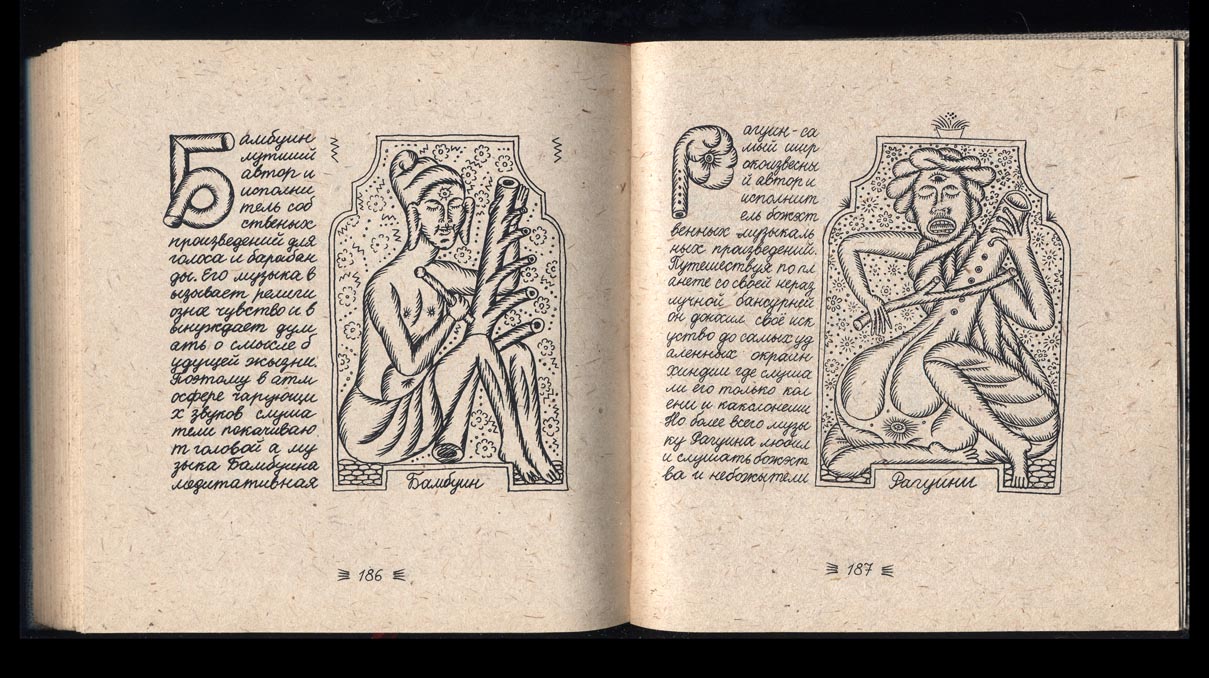 Бамбуин
лутший
автор и
исполни
тель соб
ственных
произведений для
голоса и барабан
ды. Его музыка в
ызывает религи
озное чувство и в
ынуждает дум
ать о смысле б
удущей жызни.
Поэтому в атм
осфере чарующи
х звуков слуша
тели покачиваю
т головой а му
зыка Бамбуина
медитативная
Бамбуин
186
Рагуин - са
мый шир
окоизвесны
й автор и
исполнит
ель божэст
венных музыкаль
ных произведений.
Путешествуя по пл
анете со своей нераз
лучной бансурией
он донхил своё иск
уство до самых уд
аленных окраин
Хиндии где слуша
ли его только кал
еки и какслонеши
Но более всего музы
ку Рагуина любил
и слушать божэст
ва и небожытели
Рагуини
187